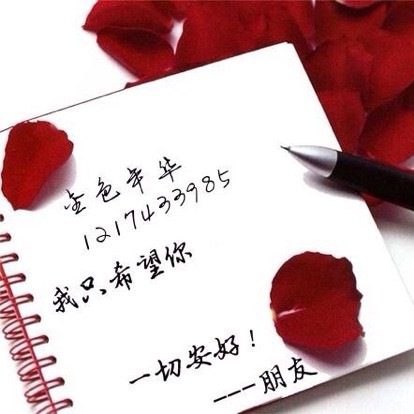 金色年华
1217433985
我只希望你
一切安好！
---朋友